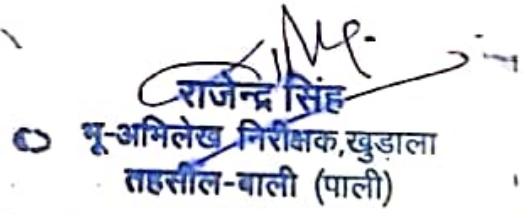 राजेन्द्र सिंह
भू-अभिलेख निरीक्षक,खुडाला
तहसील-बाली (पाली)